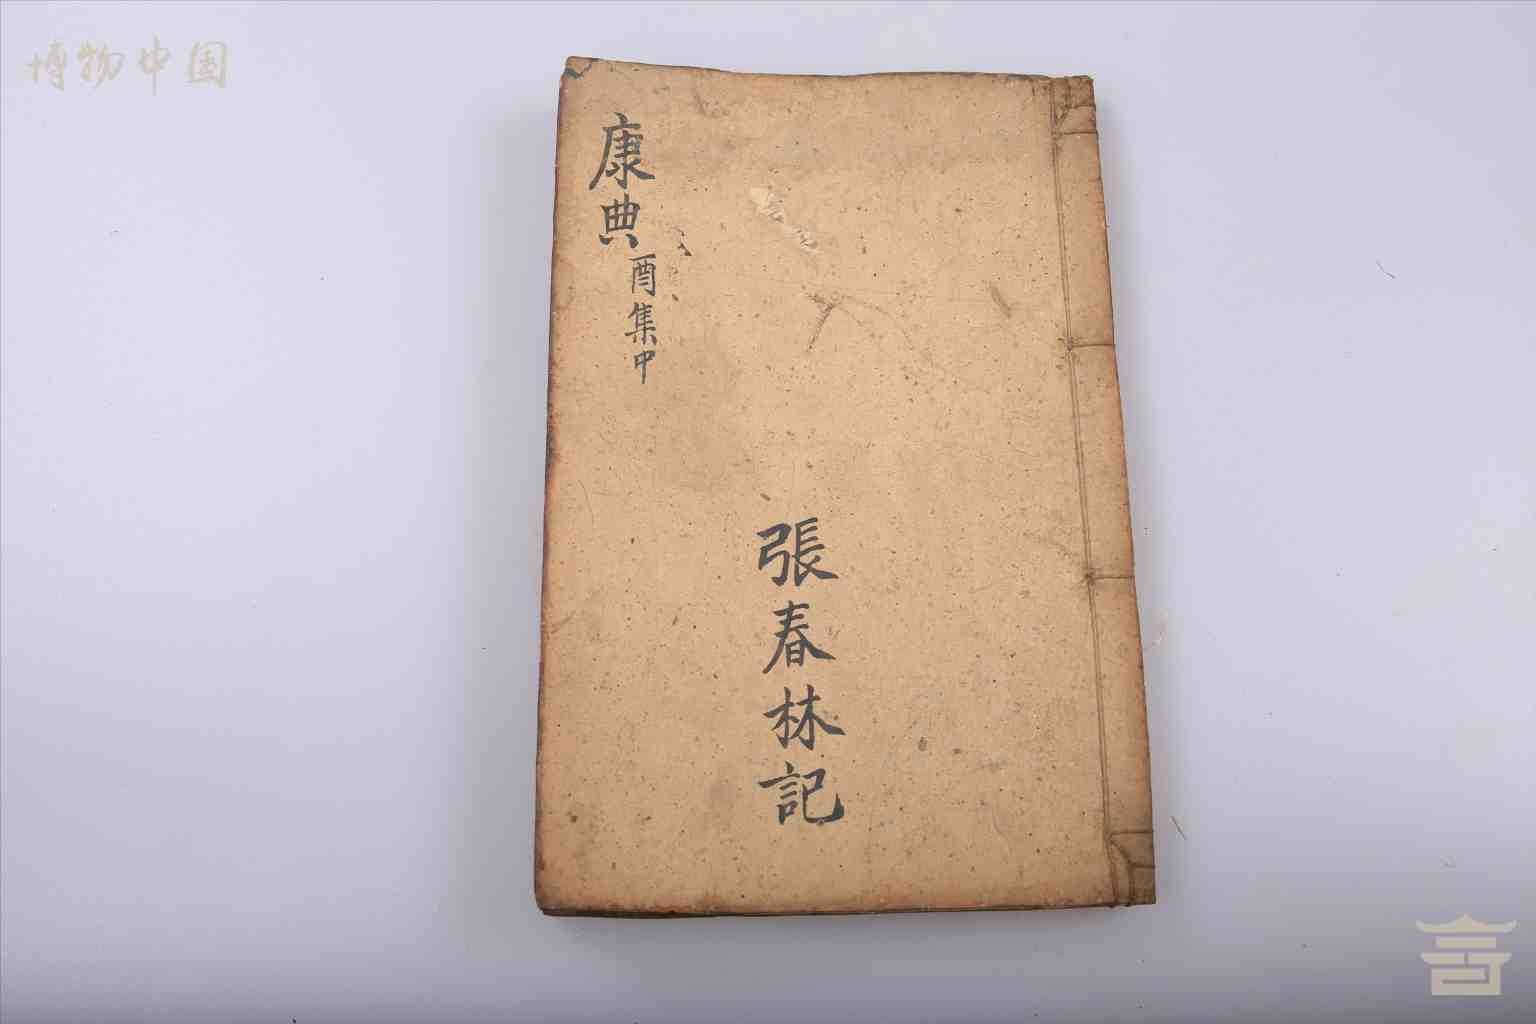 博物中国
康典
酉集中
張春林記